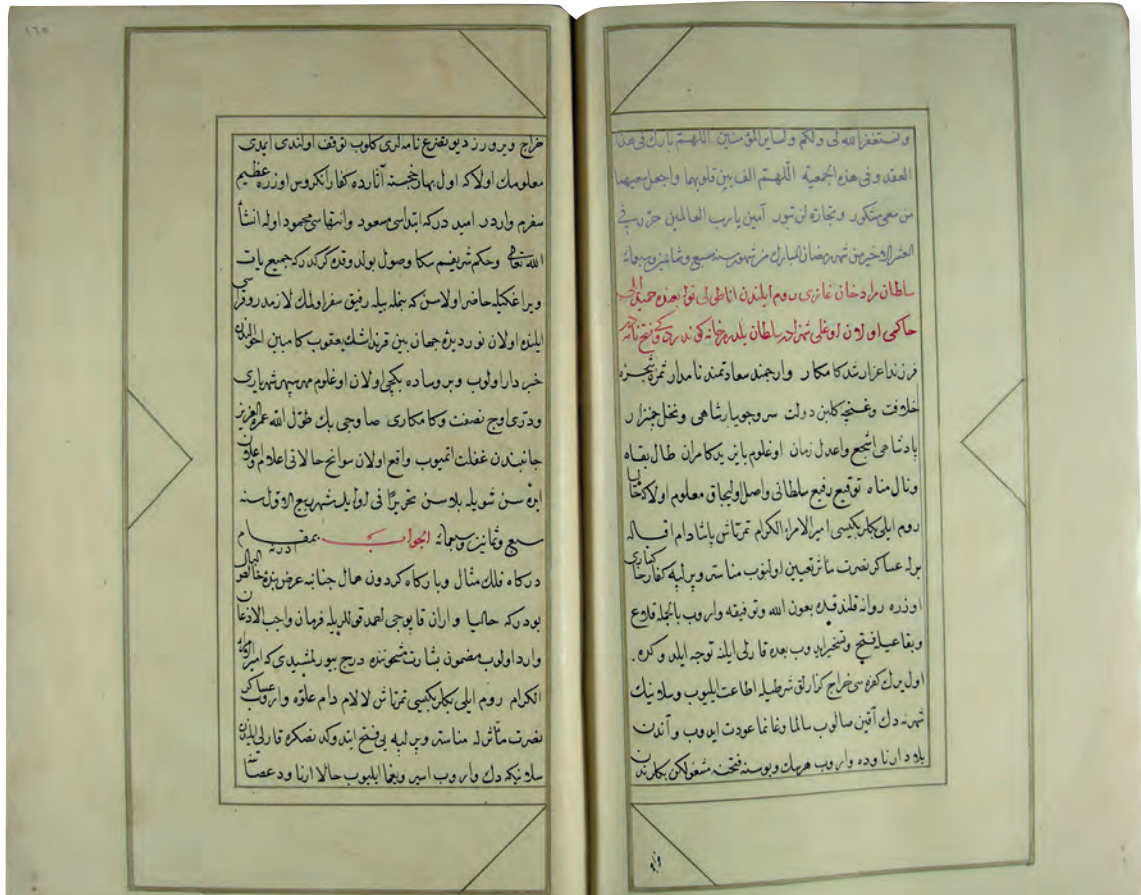 ونستغفر الله لی ولكم ولساير المؤمنين اللهم بارك فی هذا
العقد وفی هذه الجمعية اللهم الف بين قلوبهما واجعل سعيهما
من سعی مشكور وتجارة لن تبور آمين يارب العالمين حرر فی
العشر الاخير من شهر رمضان المبارك من شهور سنه سبع وثمانين وسبعمائه
سلطان مراد خان غازی روم ايلندن اناطولی نوابعنده حميدايلی
حاكمی اولان اوغلی شهزاده سلطان يلدرم خانه كوندردوكی فتح نامه در
فرزند اعز ارشد كامكار وارجمند سعادتمند نامدار ثمره شجره
خلافت وغنچه كلبن دولت سرو جويبار شاهی ونخل چمنزار
پادشاهی اشجع واعدل زمان اوغلوم بايزيد كامران طال بقاه
ونال مناه توقيع رفيع سلطانی واصل اوليجاق معلوم اولاكه حاليا
روم ايلی بكلربكيسی امير الامراء الكرام تمرتاش پاشا دام اقباله
برله عساكر نصرت مآثر تعيين اولنوب مناستر وپرلپه كفار خاكساری
اوزره روانه قلندقده بعون الله وتوفيقه واروب بالجمله قلاع
وبقاعيله فتح وتسخير ايدوب بعده قارلی ايلنه توجه ايلدوكده
اول يرك كفره سی خراج كزارلق شرطيله اطاعت ايليوب وسلانيك
شهرنه دك آقين صالوب سالما وغانما عودت ايدوب وآندن
بلاد ارناوده واروب هرسك وبوسنه فتحنه مشغولكن بكلرندن
واره
١٦٥
خراج ويرورز ديو تضرع نامه لری كلوب توقف اولندی ايمدی
معلومك اولاكه اول بهار خجسته آثارده كفار انكروس اوزره عظيم
سفرم واردر اميددركه ابتداسی مسعود وانتهاسی محمود اوله انشأ
الله تعالی وحكم شريفم سكا وصول بولدوقده كركدركه جميع يات
ويراغكيله حاضر اولاسن كه بنمله بيله رفيق سفر اولمك لازمدر وقراسی
ايلنده اولان نور ديده جهان بين قرنداشك يعقوب كامبين احوالنده
خبردار اولوب وبروساده بكچی اولان اوغلوم مهر سپهر شهرياری
ودری اوج نصفت وكامكاری صاوجی بك طول الله عمره العزيز
جانبندن غفلت ايتميوب واقع اولان سوانح حالاتی اعلام واعلان
ايده سن شويله بلاسن تحريرا فی اوايل شهر ربيع الاول سنه
سبع وثمانين وسبعمائه الجواب بمقام ادرنه
دركاه فلك مثال وباركاه كردون همال جنابنه عرض بنده خالص البال
بودركه حاليا واران قاپوجی احمد قوللريله فرمان واجب الاذعان
وارد اولوب مضمون بشارت مشحوننده درج بيورلمشيدی كه امير الامراء
الكرام روم ايلی بكلربكيسی تمرتاش لالام دام علوه واروب عساكر
نصرت مآثرله مناستر وپرلپه يی فتح ايتدوكدنصكره قارلی ايلندن
سلانيكه دك واروب اسير ويغما ايليوب حالا ارناود عصاتنه